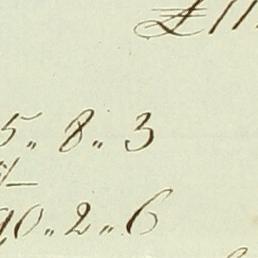 £ 11
5 " 8 " 3
90 " 2 " 6